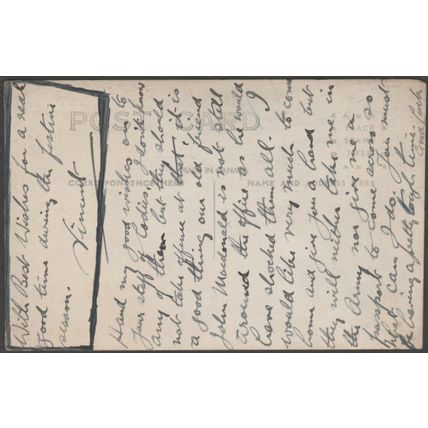 With Best Wishes for a real
good time during the festive
season.
Vincent
Hand my good wishes on to
your staff ladies I don't know
any of them but they should
not take offence at that, it is
a good thing our old friend
John Macdonald is not still
around the office as he would
have shocked them all. I
would like very much to come
home and give you a hand but
they will neither take me in
the Army nor give me a
passport to come across so
what can I do. You must
be having a pretty tough time.
Good luck
POST CARD
MADE IN CANADA
CORRESPONDENCE HERE
NAME AND ADDRESS HERE